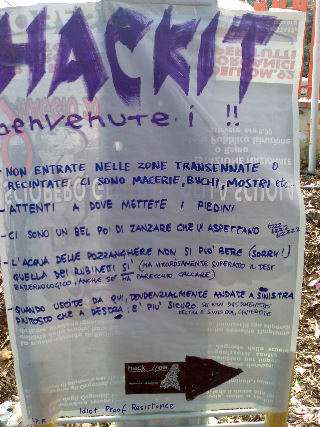 HACKIT
benvenute.i !!
- NON ENTRATE NELLE ZONE TRANSENNATE O
RECINTATE, CI SONO MACERIE, BUCHI, MOSTRI etc..
- ATTENTI A DOVE METTETE I PIEDINI
- CI SONO UN BEL PO' DI ZANZARE CHE VI ASPETTANO
- L'ACQUA DELLE POZZANGHERE NON SI PUO' BERE (SORRY!)
QUELLA DEI RUBINETTI SI' (HA VIGOROSAMENTE SUPERATO IL TEST
BATTERIOLOGICO, ANCHE SE HA PARECCHIO CALCARE)
- QUANDO USCITE DA QUI, TENDENZIALMENTE ANDATE A SINISTRA
PIUTTOSTO CHE A DESTRA: E' PIU' SICURO.
hack
Idiot Proof Resistance